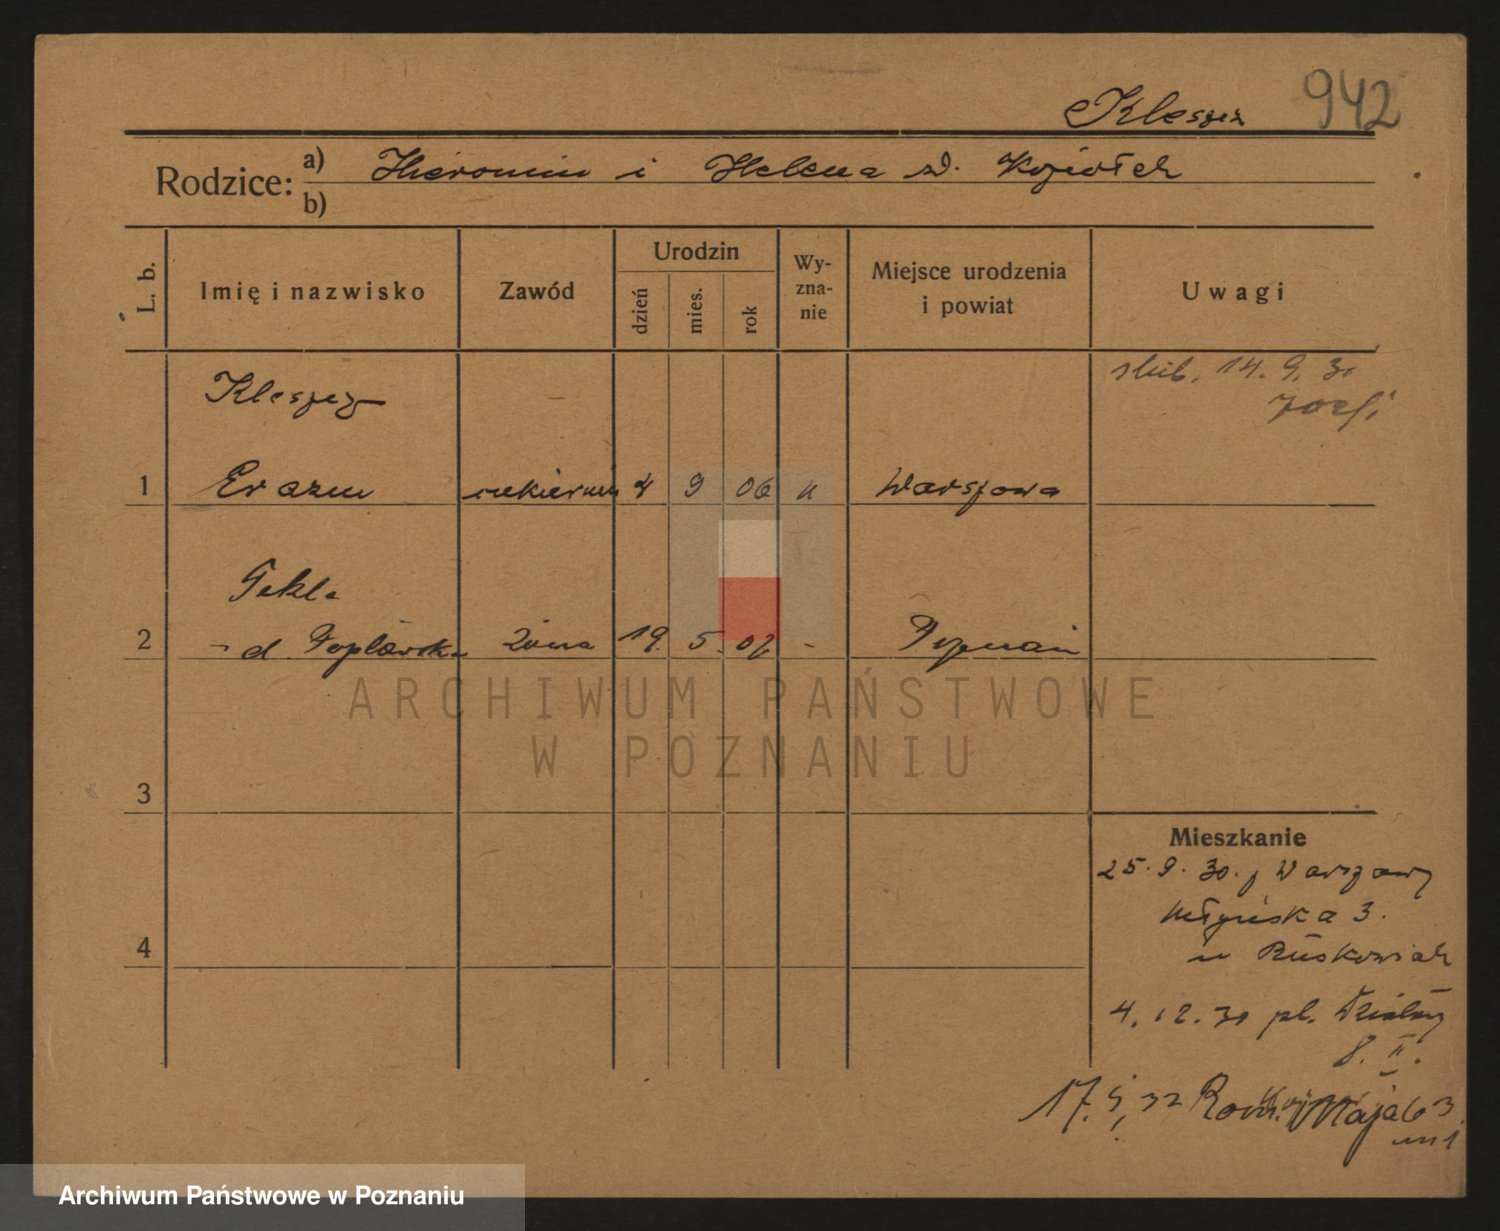 942
Kleszcz
Rodzice: a) Hieronim i Helena d.
b)
L. b.
Imię i nazwisko
Zawód
Urodzin
dzień
mies.
rok
Wy-
zna-
nie
Miejsce urodzenia
i powiat
Uwagi
ślub. 14. 9. 30
Kleszcz
1 Erazm cukiernik 4 9 06 Warszawa
Tekla
2 d. żona 19. 5. 07 - Poznań
3
4
Mieszkanie
25. 9. 30. z Warszawy
Młyńska 3.
u
4. 12. 30 pl. Działowy
8. II.
17. 32 Maja 63
m 1
ARCHIWUM PAŃSTWOWE
W POZNANIU
Archiwum Państwowe w Poznaniu